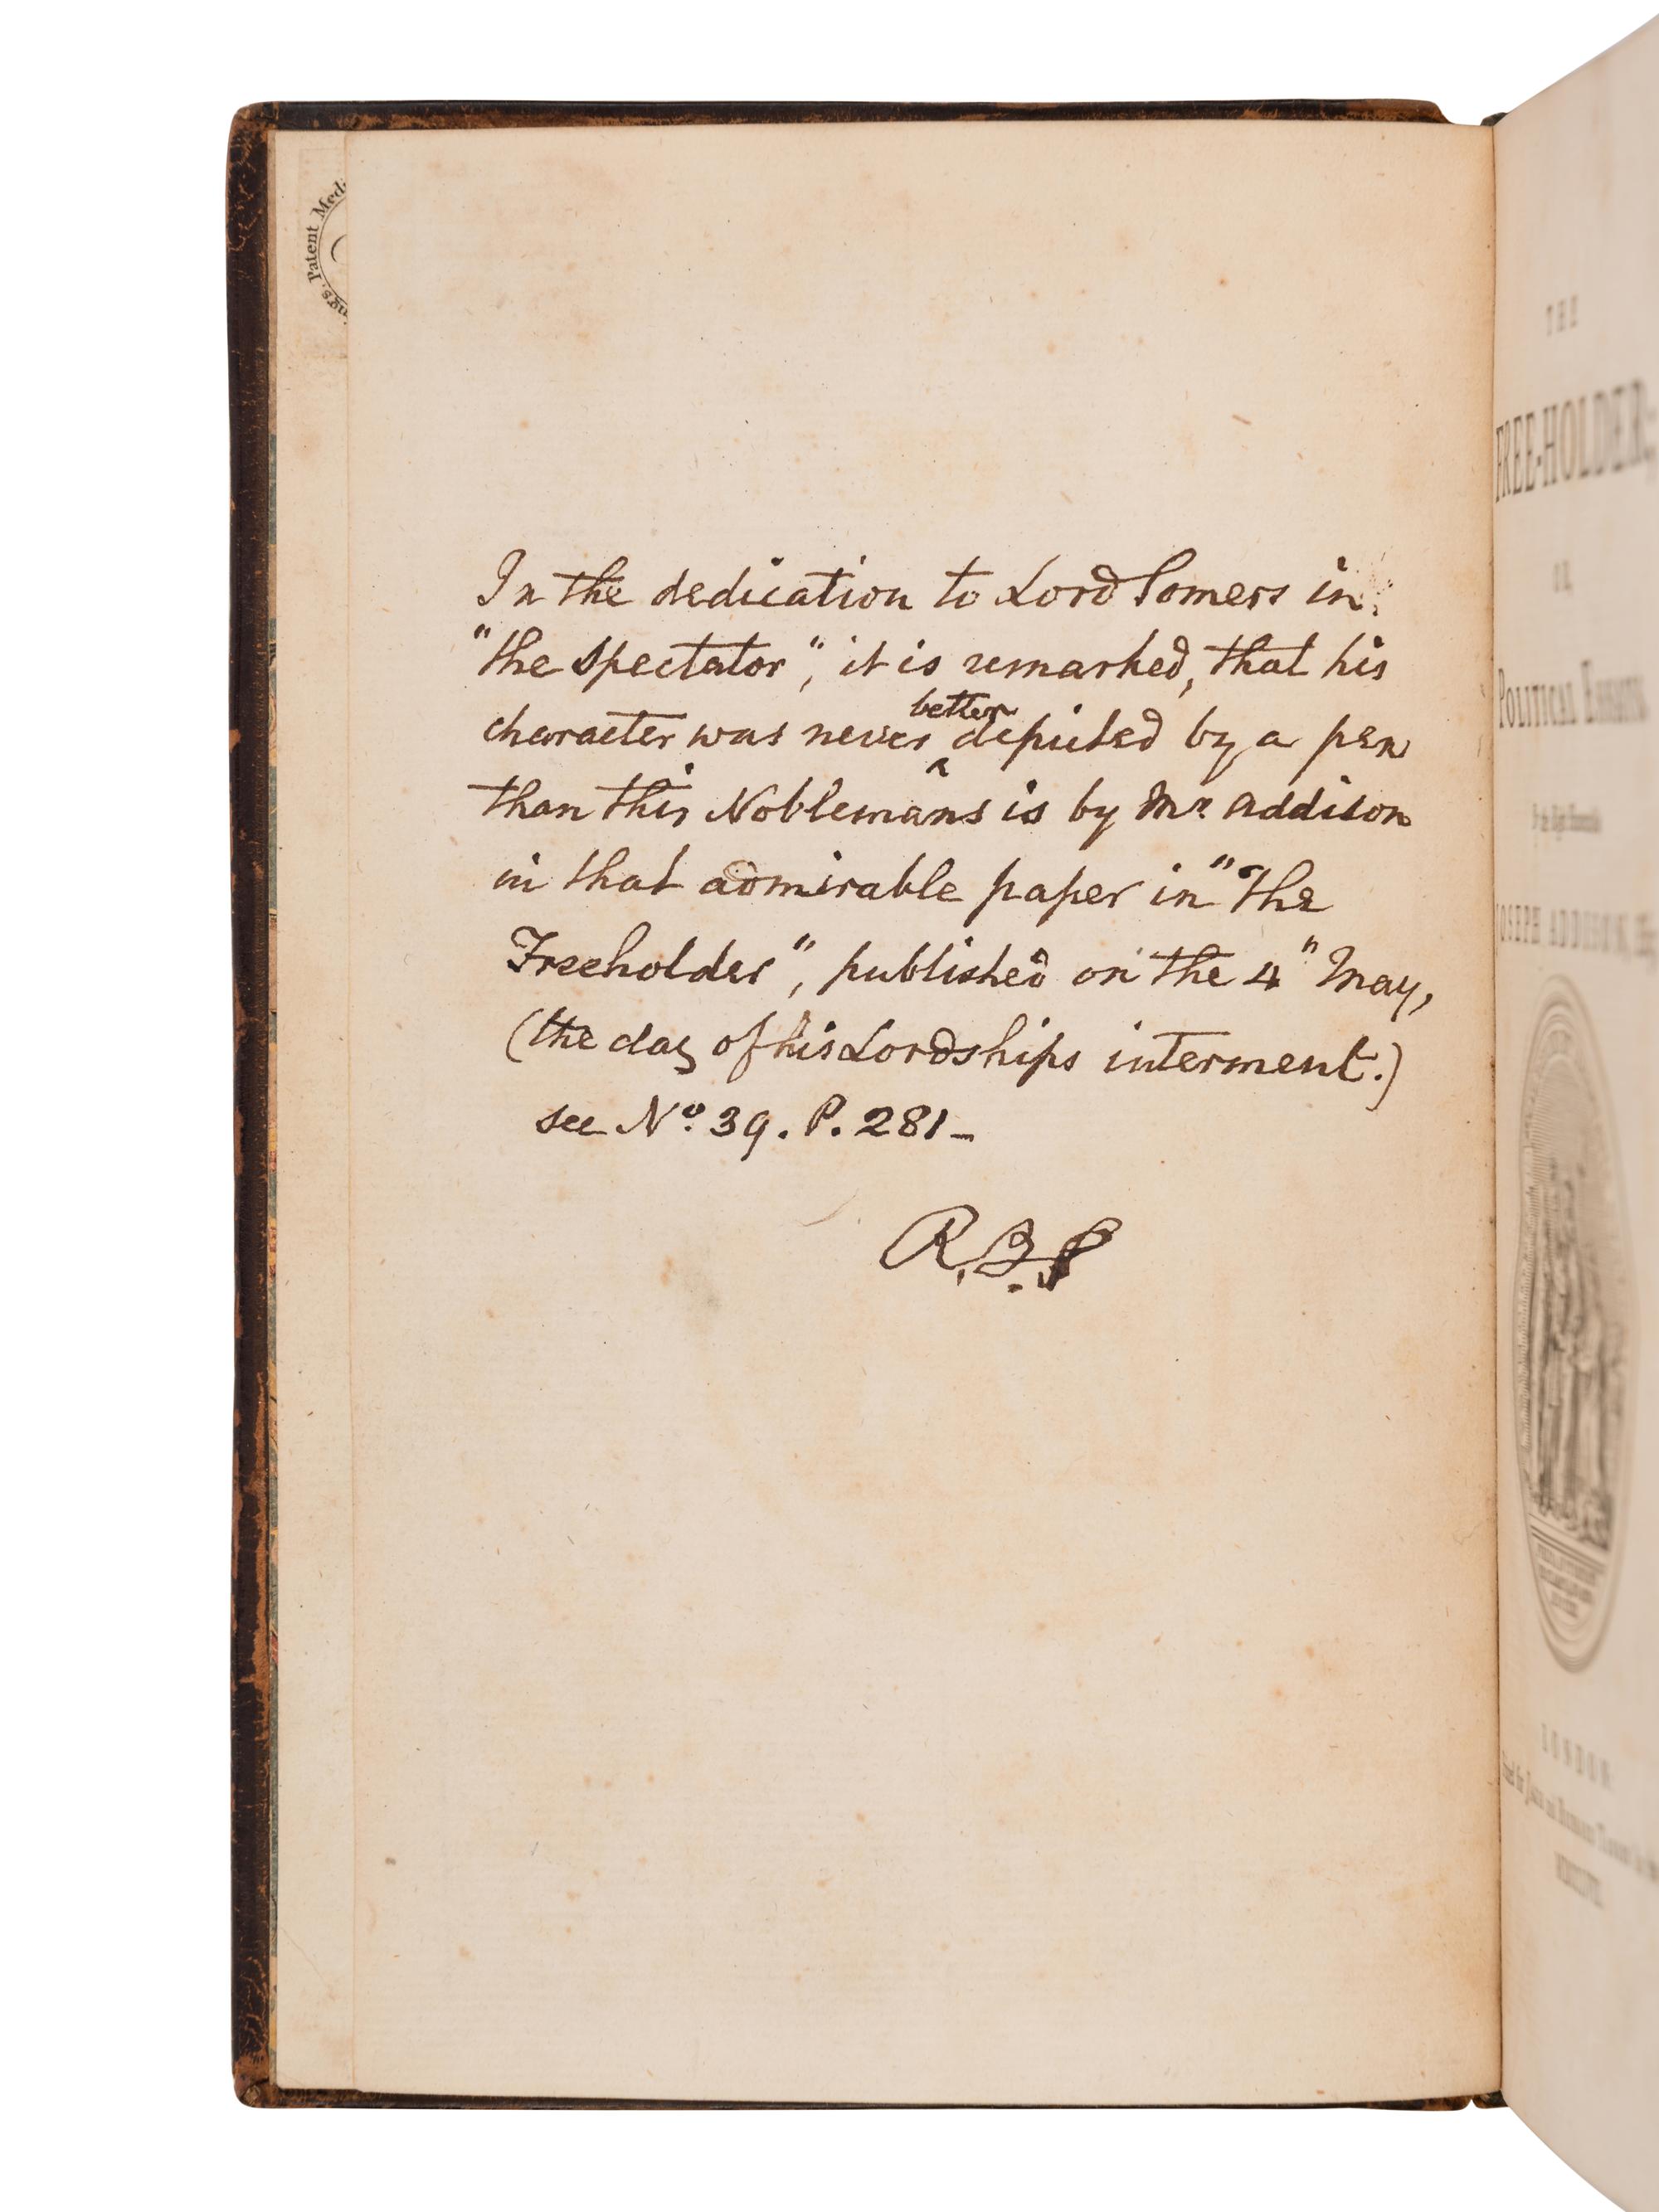 ng's. Patent Med
In the dedication to Lord Somers in
"the Spectator", it is remarked, that his
better
character was never ^ depicted by a pen
than this Noblemans is by Mr. Addison
in that admirable paper in "The
Freeholder", published on the 4" May,
(the day of his Lordships interment.)
see No. 39. P. 281-
R. B. S
THE
FREE-HOLDER;
POLITICAL ESSAYS
JOSEPH ADDISON,
LONDON